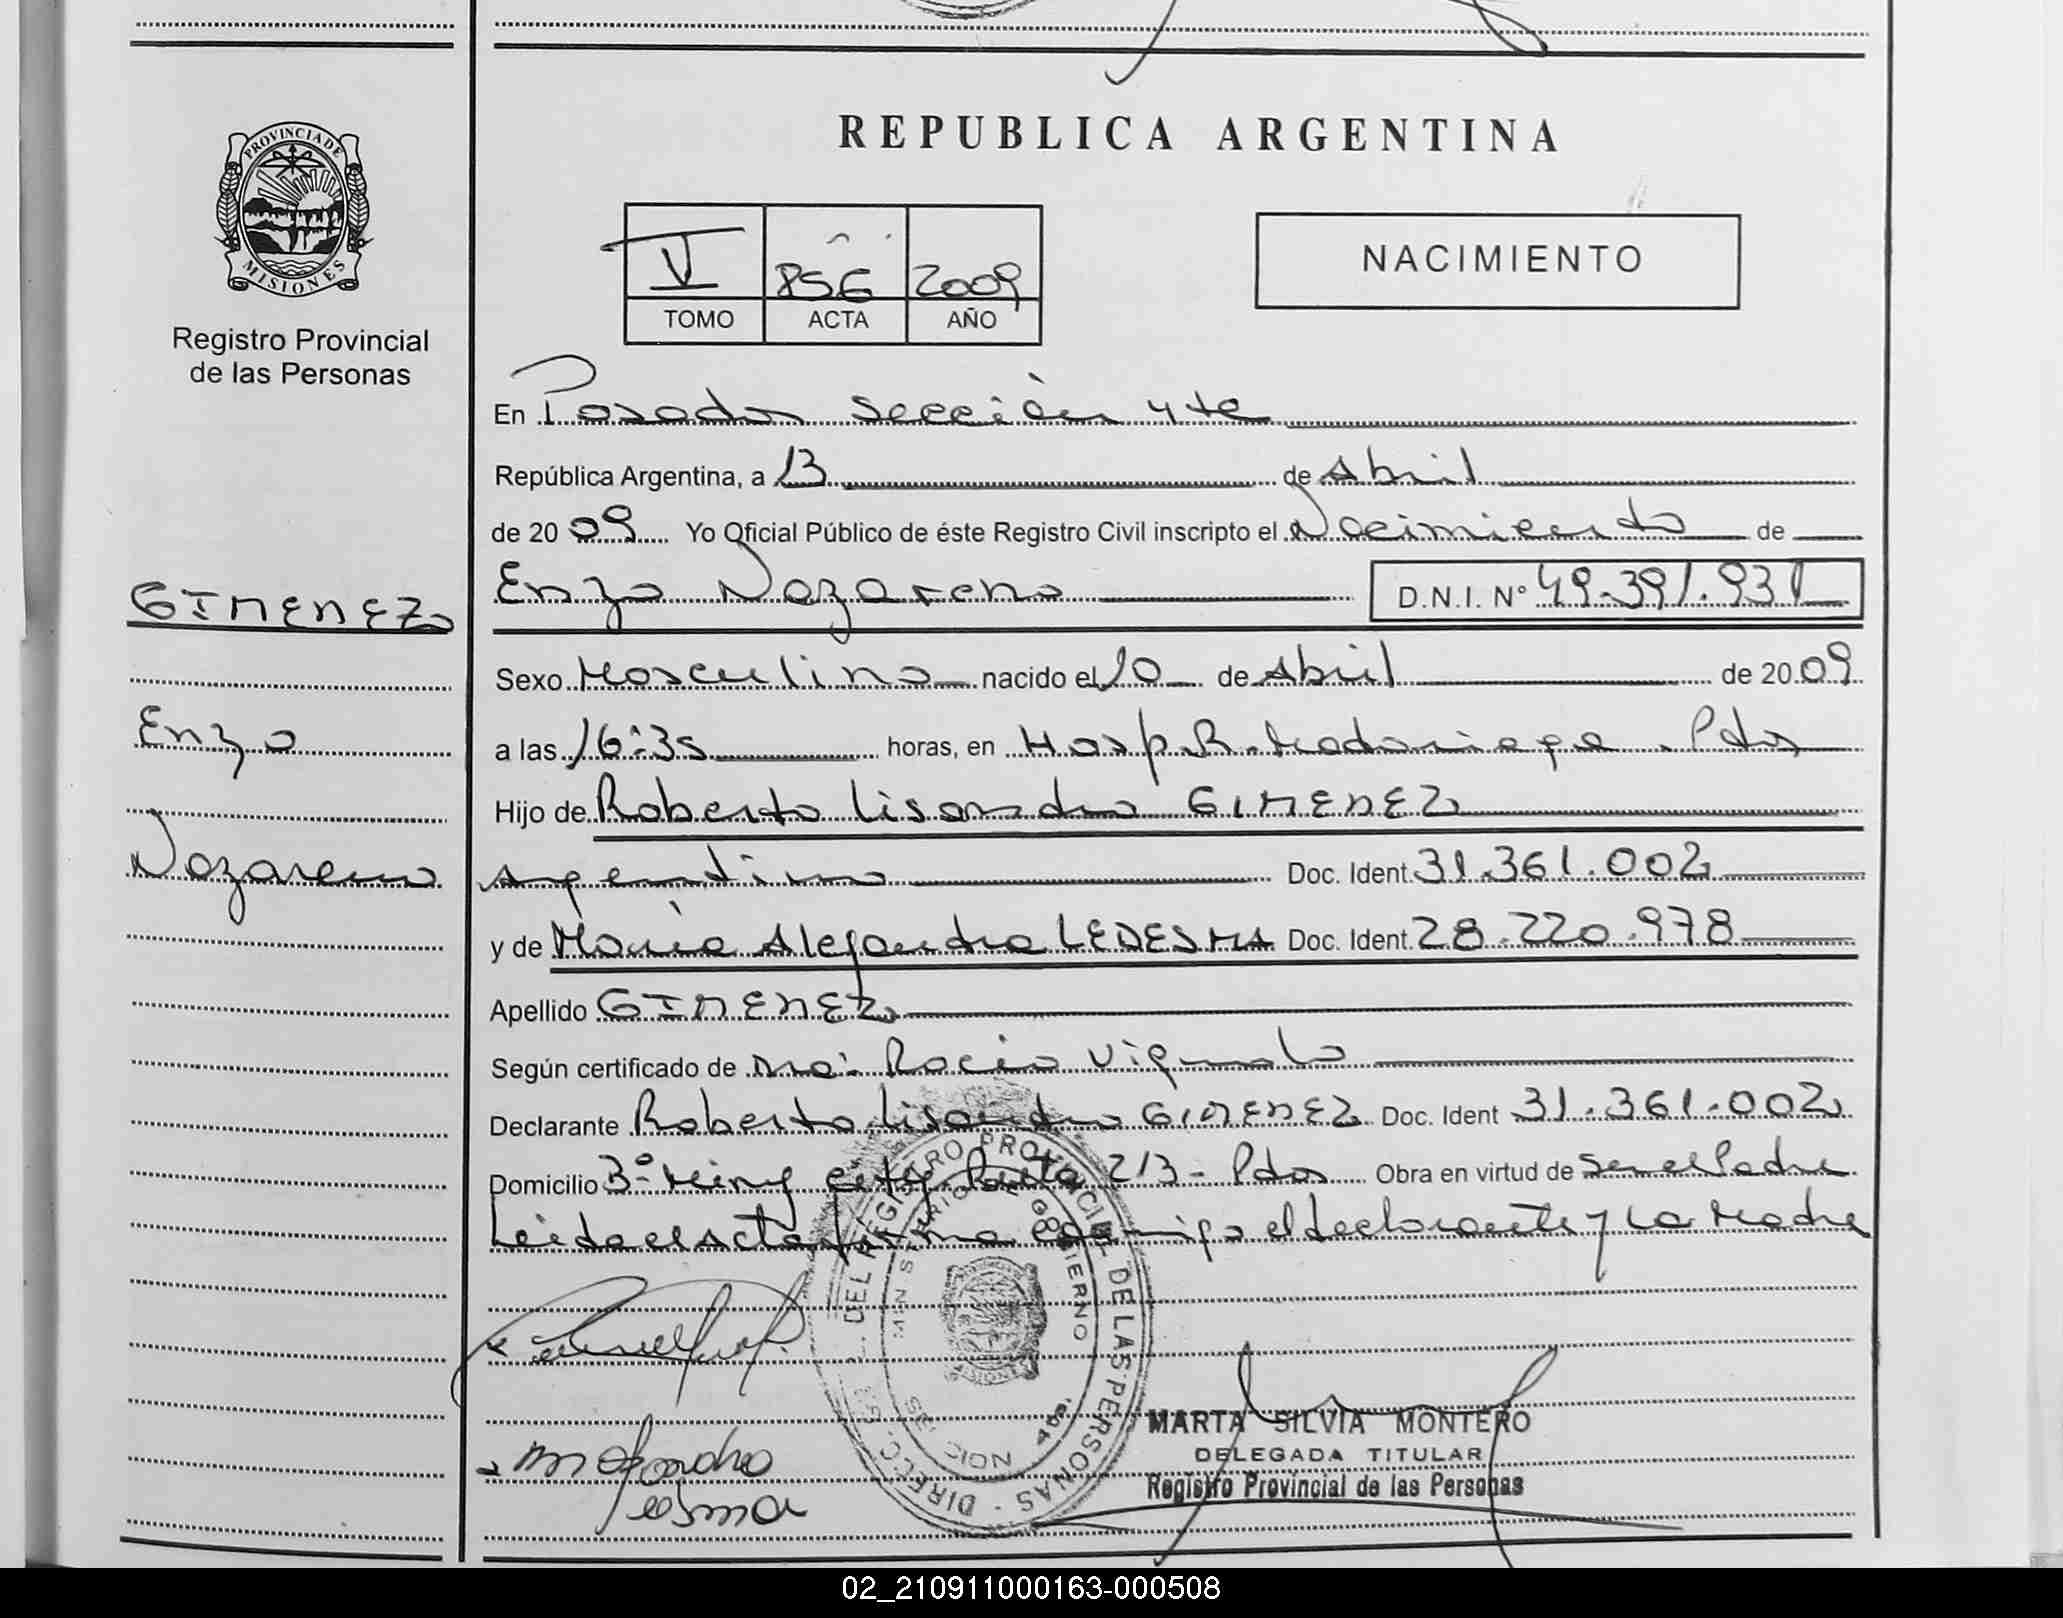 PROVINCIA DE
MISIONES
Registro Provincial
de las Personas
GIMENEZ
Enzo
Nazareno
REPUBLICA ARGENTINA
V 856 2009
TOMO ACTA AÑO
NACIMIENTO
En Posadas Sección 4ta
República Argentina, a 13 de Abril
de 2009 Yo Oficial Público de éste Registro Civil inscripto el Nacimiento de
Enzo Nazareno D.N.I. N° 49.391.931
Sexo Masculino nacido el 10 de Abril de 2009
a las 16:35 horas, en Hosp. R. Madariaga. Pdas
Hijo de Roberto Lisandro GIMENEZ
Argentino Doc. Ident. 31.361.002
y de María Alejandra LEDESMA Doc. Ident. 28.220.978
Apellido GIMENEZ
Según certificado de Rocío Vignolo
Declarante Roberto Lisandro GIMENEZ Doc. Ident 31.361.002
Domicilio 213 - Pdas Obra en virtud de Ser el Padre
Leida el Acta firma conmigo el declarante y La Madre
DIREC. DEL REGISTRO PROVINCIAL DE LAS PERSONAS
MARTA SILVIA MONTERO
DELEGADA TITULAR
Registro Provincial de las Personas
02_210911000163-000508